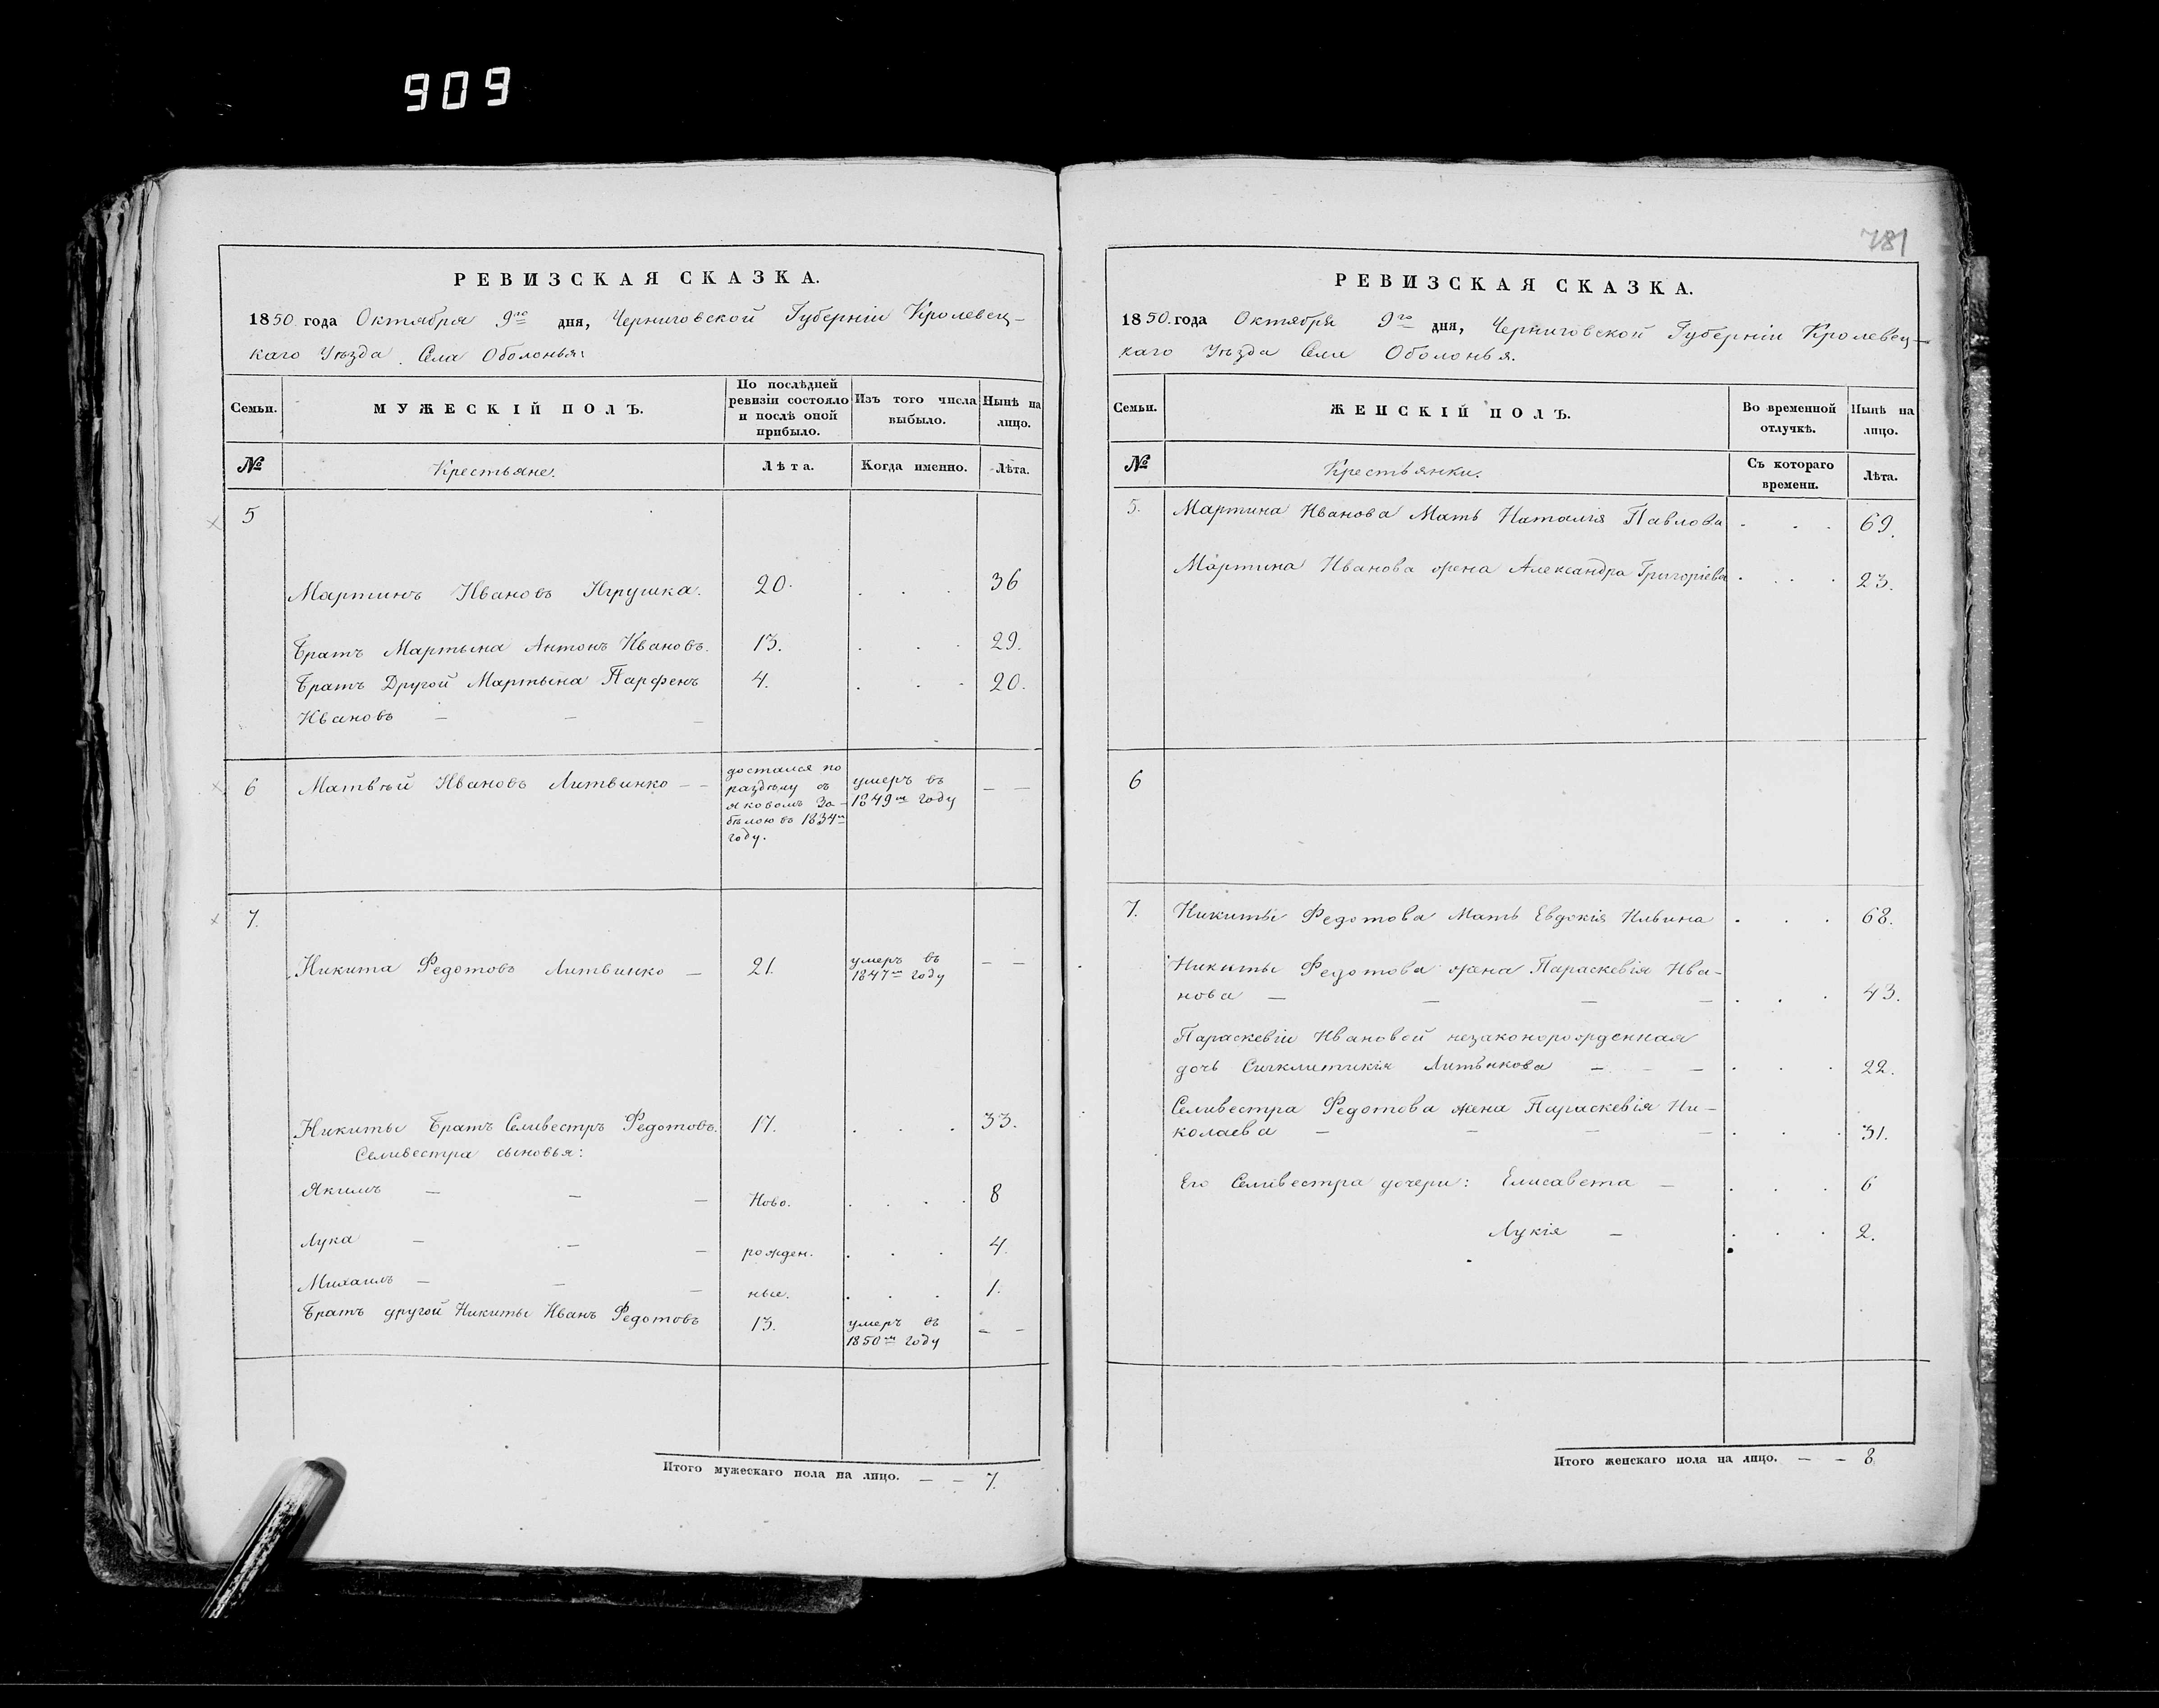 909
РЕВИЗСКАЯ СКАЗКА.
1850 года Октября 9го дня, Черниговской Губерніи Кролевец-
каго Уѣзда Села Оболонья.
Семьи.
МУЖЕСКІЙ ПОЛЪ.
По послѣдней
ревизіи состояло
и послѣ оной
прибыло.
Изъ того числа
выбыло.
Нынѣ на
лицо.
№
Крестьяне.
Лѣта.
Когда именно.
Лѣта.
5
Мартинъ Ивановъ Игрушка. 20. . . . 36
Братъ Мартына Антонъ Ивановъ. 13. . . . 29.
Братъ Другой Мартына Парфенъ 4. . . . 20.
Ивановъ — — —
6 Матвѣй Ивановъ Литвинко — —
достался по
раздѣлу съ
Яковомъ За-
бѣлою въ 1834м
году.
умеръ въ
1849м году
— —
7.
Никита Федотовъ Литвинко — 21.
умеръ въ
1847м году
— —
Никиты Братъ Селивестръ Федотовъ. 17. . . . 33.
Селивестра сыновья:
Якимъ — — — Ново. . . . . 8
Лука — — — рожден. . . . 4.
Михаилъ — — — ные. . . . 1.
Братъ другой Никиты Иванъ Федотовъ 13.
умеръ въ
1850м году
— —
Итого мужескаго пола на лицо. — — 7.
781
РЕВИЗСКАЯ СКАЗКА.
1850. года Октября 9го дня, Черниговской Губерніи Кролевец-
каго Уѣзда Села Оболонья.
Семьи.
ЖЕНСКІЙ ПОЛЪ.
Во временной
отлучкѣ.
Нынѣ на
лицо.
№
Крестьянки.
Съ котораго
времени.
Лѣта.
5. Мартина Иванова Мать Наталія Павлова . . . 69.
Мартина Иванова жена Александра Григоріева . . . 23.
6
7. Никиты Федотова Мать Евдокія Ильина . . . 68.
Никиты Федотова жена Параскевія Ива-
нова — — — — . . . 43.
Параскевіи Ивановой незаконорожденная
дочь Сигклитикія Литвнкова — — — . . . 22.
Селивестра Федотова жена Параскевія Ни-
колаева — — — — . . . 31.
Его Селивестра дочери: Елисавета — . . . 6
Лукія — . . . 2.
Итого женскаго пола на лицо. — — 8